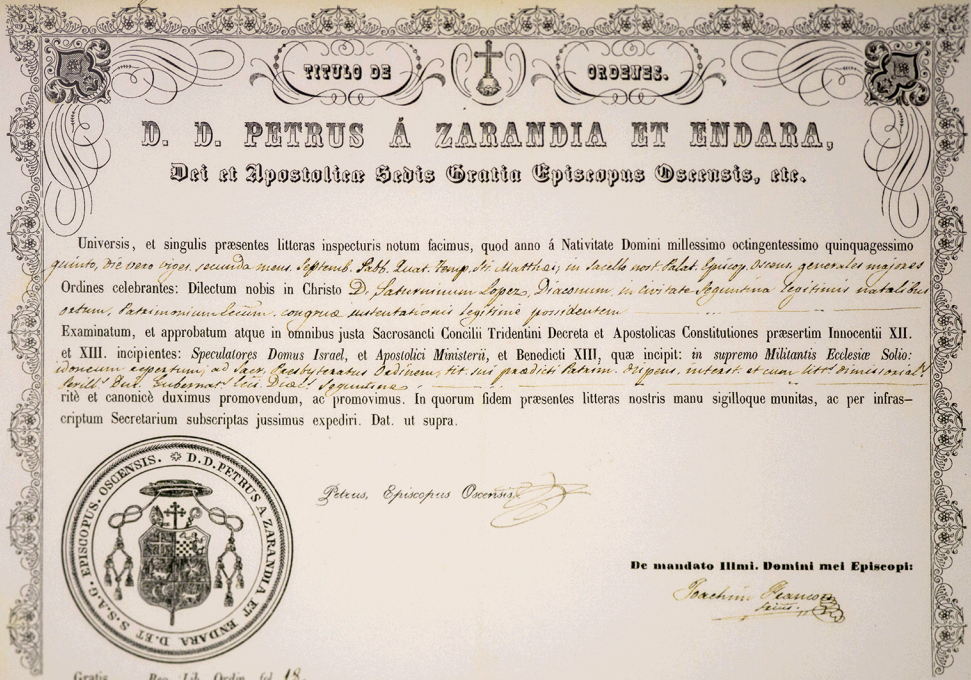 TITULO DE ORDENES.
D. D. PETRUS Á ZARANDIA ET ENDARA,
Dei et Apostolicæ Sedis Gratia Episcopus Oscensis, etc.
Universis, et singulis præsentes litteras inspecturis notum facimus, quod anno á Nativitate Domini millessimo octingentessimo quinquagessimo
quinto, die vero viges. secunda mens. Septemb. Sabb. Quat. Temp. Sti. Matthæi, in Sacello nost. Palat. Episcop. Oscens. generales majores
Ordines celebrantes: Dilectum nobis in Christo D. Saturninum Lopez, Diaconum, in civitate Seguntina legitimis natalibus
ortum, Patrimonium congruæ sustentationis legitimè possidentem
Examinatum, et approbatum atque in omnibus justa Sacrosancti Concilii Tridentini Decreta et Apostolicas Constitutiones præsertim Innocentii XII.
et XIII. incipientes: Speculatores Domus Israel, et Apostolici Ministerii, et Benedicti XIII, quæ incipit: in supremo Militantis Ecclesiæ Solio:
idoneum repertum, ad Sacr. Presbyteratus Ordinem, tit. sui prædicti Patrim. dispens. interst. et cum litt.s dimissorial.s
Gubernat. Diæc.s Seguntinæ
ritè et canonicè duximus promovendum, ac promovimus. In quorum fidem præsentes litteras nostris manu sigilloque munitas, ac per infras-
criptum Secretarium subscriptas jussimus expediri. Dat. ut supra.
D.D. PETRUS A ZARANDIA ET ENDARA D. ET S.S.A.G. EPISCOPUS. OSCENSIS.
Petrus, Episcopus Oscensis
De mandato Illmi. Domini mei Episcopi:
Joachim
Gratis. Reg. Lib. Ordin. fol. 18.